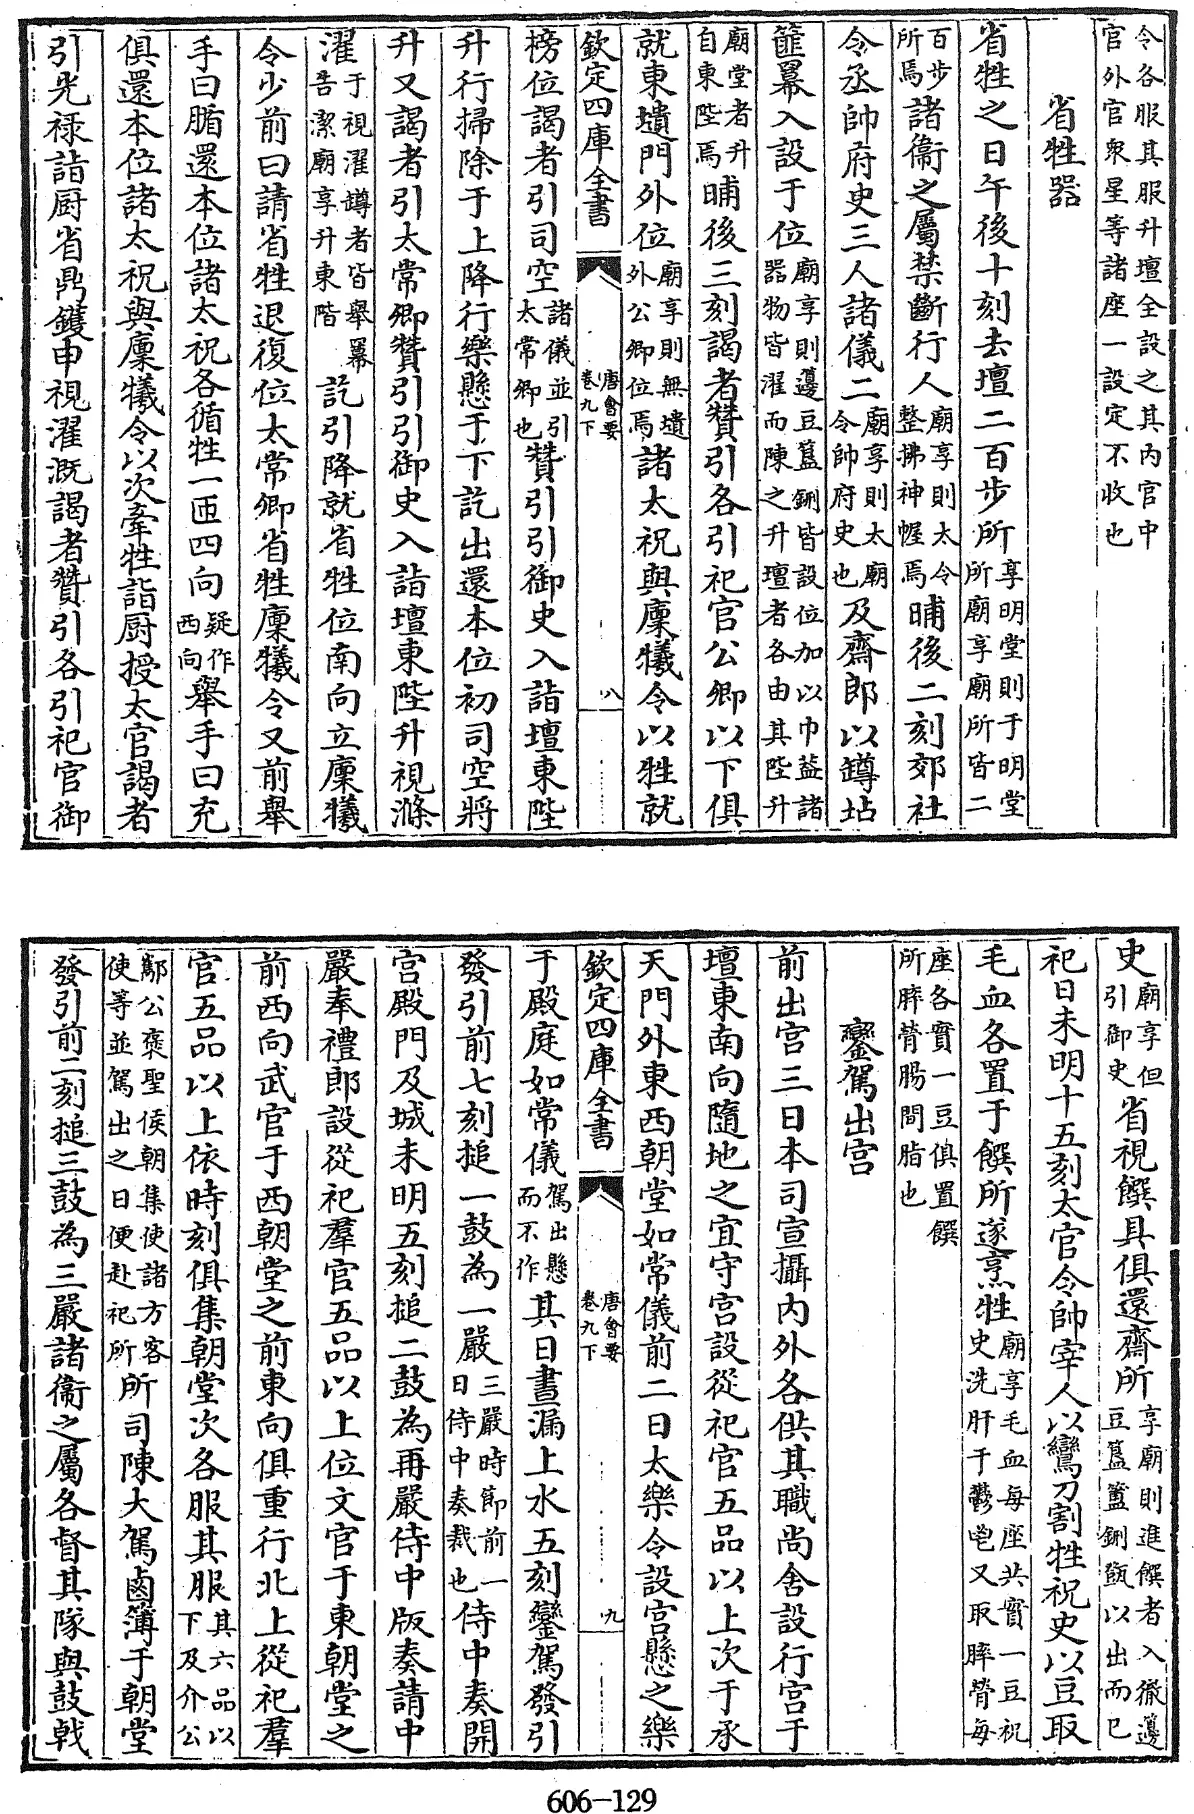 令各服其服升壇全設之其内官中
官外官衆星等諸座一設定不收也
省牲器
省牲之日午後十刻去壇二百步所享明堂則于明堂所廟享廟所皆二
百步所焉諸衞之屬禁斷行人廟享則太令整拂神幄焉晡後二刻郊社
令丞帥府史三人諸儀二廟享則太廟令帥府史也及齋郎以罇坫
篚羃入設于位廟享則籩豆簋鉶皆設位加以巾葢諸器物皆濯而陳之升壇者各由其陛升
廟堂者升自東陛焉晡後三刻謁者贊引各引祀官公卿以下俱
就東壝門外位廟享則無壝外公卿位焉諸太祝與廩犧令以牲就
欽定四庫全書 唐會要卷九下 八
榜位謁者引司空諸儀並引太常卿也贊引引御史入詣壇東陛
升行掃除于上降行樂懸于下訖出還本位初司空將
升又謁者引太常卿贊引引御史入詣壇東陛升視滌
濯于視濯罇者皆舉羃告潔廟享升東階訖引降就省牲位南向立廩犧
令少前曰請省牲退復位太常卿省牲廩犧令又前舉
手曰腯還本位諸太祝各循牲一匝四向疑作西向舉手曰充
俱還本位諸太祝與廩犧令以次牽牲詣厨授太官謁者
引光禄詣厨省鼎鑊申視濯溉謁者贊引各引祀官御
史廟享但引御史省視饌具俱還齋所享廟則進饌者入徹籩豆簋簠鉶㽅以出而已
祀日未明十五刻太官令帥宰人以鸞刀割牲祝史以豆取
毛血各置于饌所遂烹牲廟享毛血每座共實一豆祝史洗肝于鬱鬯又取膟膋每
座各實一豆俱置饌所膟膋腸間脂也
鑾駕出宫
前出宫三日本司宣攝内外各供其職尚舍設行宫于
壇東南向隨地之宜守宫設從祀官五品以上次于承
天門外東西朝堂如常儀前二日太樂令設宫懸之樂
欽定四庫全書 唐會要卷九下 九
于殿庭如常儀駕出懸而不作其日晝漏上水五刻鑾駕發引
發引前七刻搥一鼓為一嚴三嚴時節前一日侍中奏裁也侍中奏開
宫殿門及城未明五刻搥二鼓為再嚴侍中版奏請中
嚴奉禮郎設從祀羣官五品以上位文官于東朝堂之
前西向武官于西朝堂之前東向俱重行北上從祀羣
官五品以上依時刻俱集朝堂次各服其服其六品以下及介公
鄰公襃聖侯朝集使諸方客使等並駕出之日便赴祀所所司陳大駕鹵簿于朝堂
發引前二刻搥三鼓為三嚴諸衞之屬各督其隊與鼓戟
606-129